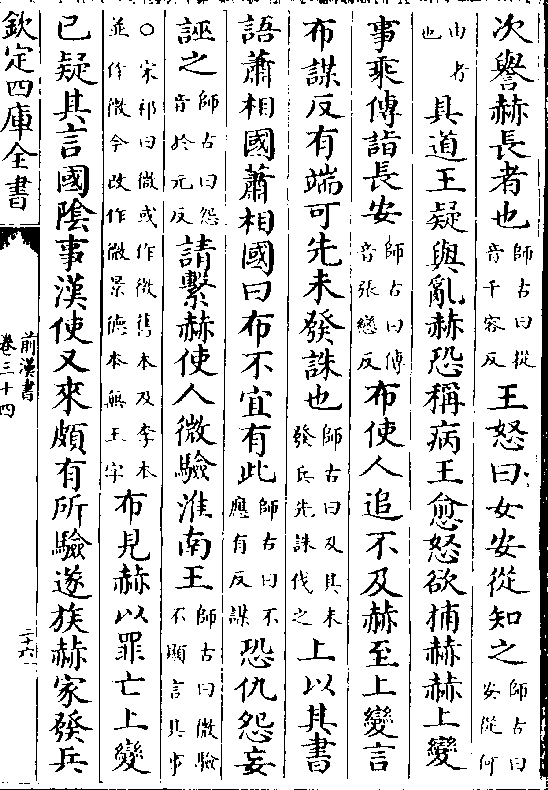 次譽赫長者也師古曰從音千容反王怒曰女安從知之師古曰安從何
由者也具道王疑與亂赫恐稱病王愈怒欲捕赫赫上變
事乘傳詣長安師古曰傳音張戀反布使人追不及赫至上變言
布謀反有端可先未發誅也師古曰及其未發兵先誅伐之上以其書
語蕭相國蕭相國曰布不宜有此師古曰不應有反謀恐仇怨妄
誣之師古曰怨音於元反請繫赫使人微驗淮南王師古曰微驗不顯言其事
○宋祁曰微或作徵舊本及李本並作微今改作微景德本無王字布見赫以罪亡上變
已疑其言國陰事漢使又來頗有所驗遂族赫家發兵
欽定四庫全書
前漢書
卷三十四
二十六